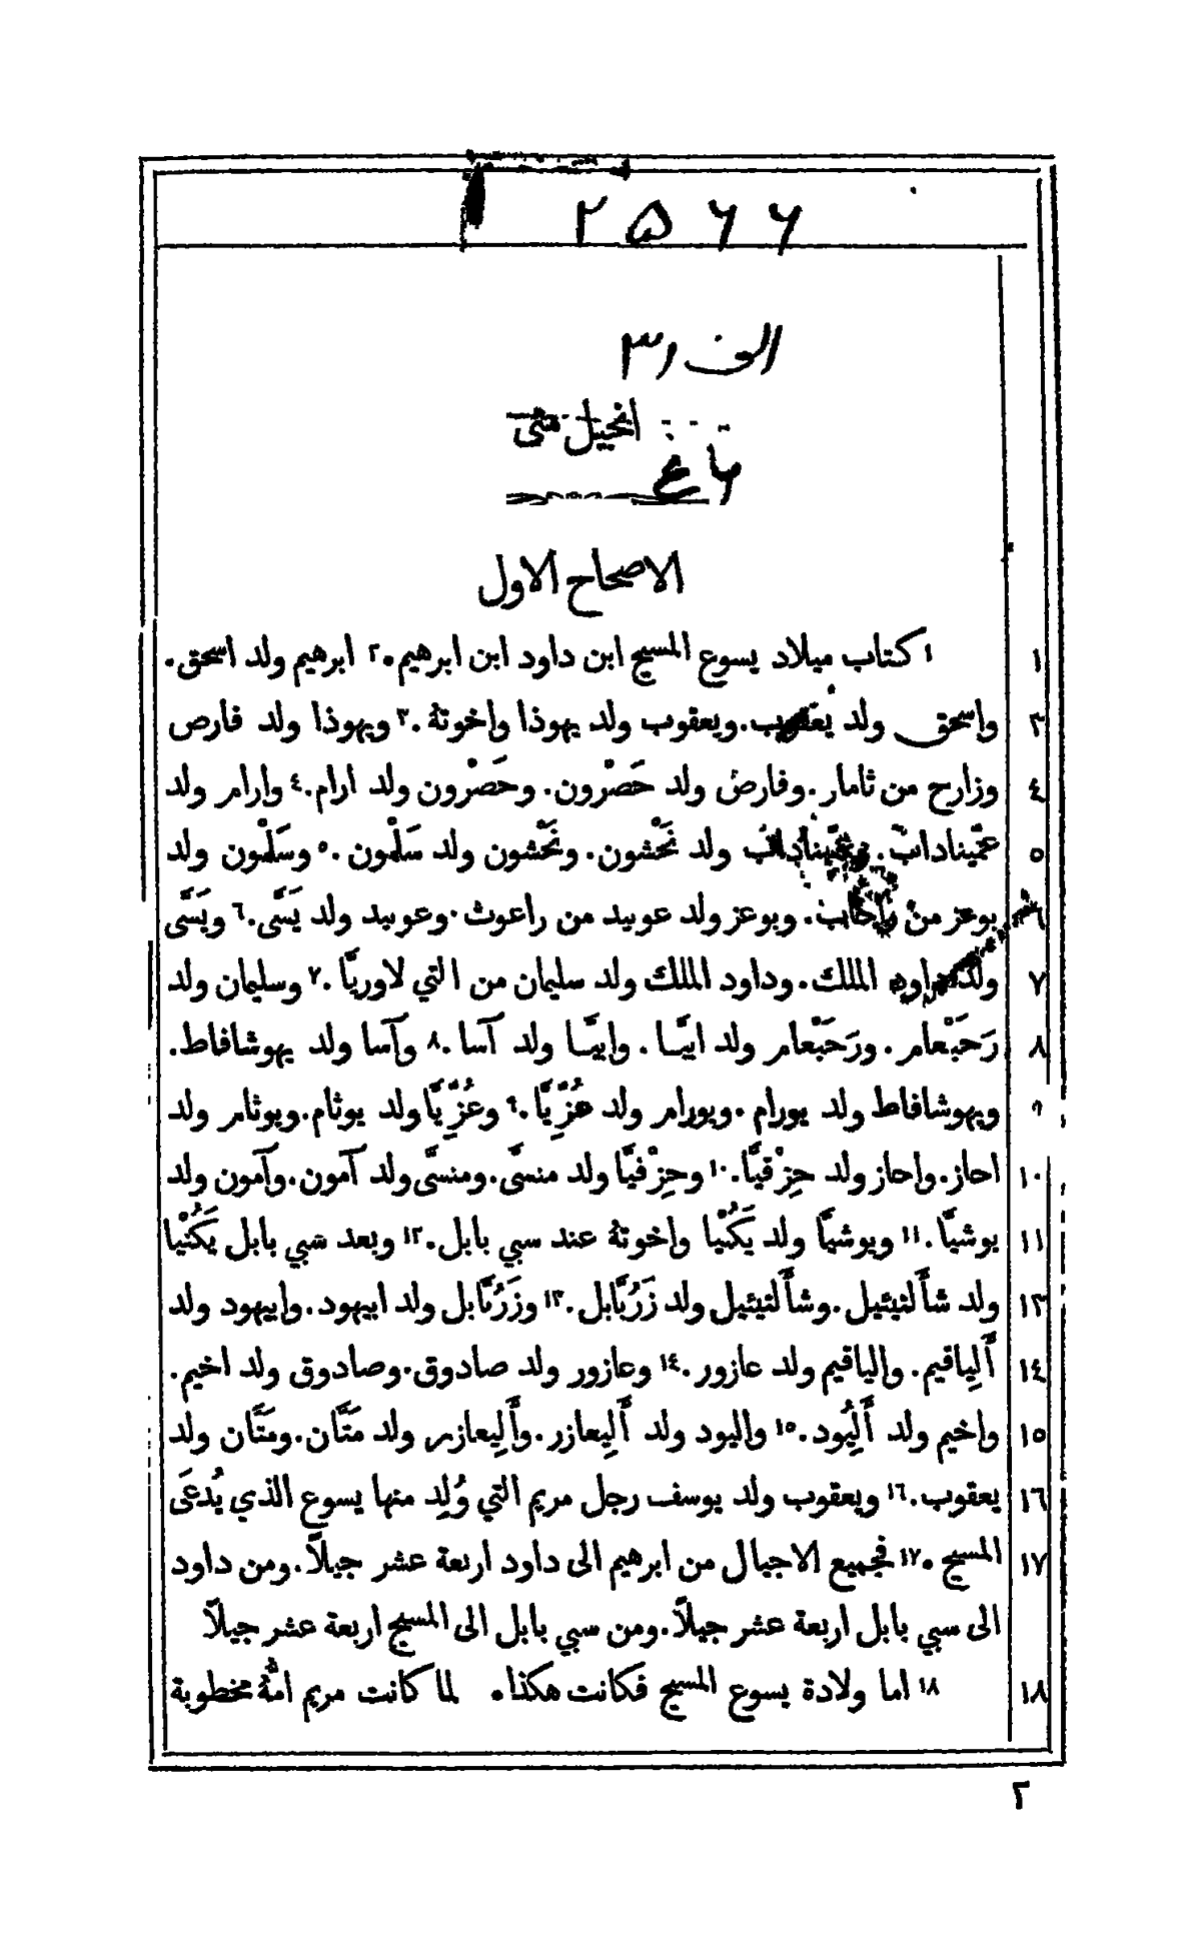 ۲۵۶۶
الف ۳۱
انجيل متى
الاصحاح الاول
١ ١ كتاب ميلاد يسوع المسيح ابن داود ابن ابرهيم. ٢ ابرهيم ولد اسحق.
٣ واسحق ولد يعقوب. ويعقوب ولد يهوذا واخوتهُ. ٣ ويهوذا ولد فارص
٤ وزارح من ثامار. وفارص ولد حَصْرون. وحَصْرون ولد ارام. ٤ وارام ولد
٥ عمّيناداب. وعمّيناداب ولد نَحْشون. ونَحْشون ولد سَلْمون. ٥ وسَلْمون ولد
٦ بوعز من راحاب. وبوعز ولد عوبيد من راعوث. وعوبيد ولد يَسَّى. ٦ ويَسَّى
٧ ولد داود الملك. وداود الملك ولد سليمان من التي لاوريَّا. ٧ وسليمان ولد
٨ رَحَبْعام. ورَحَبْعام ولد ابيَّا. وابيَّا ولد آسا. ٨ وآسا ولد يهوشافاط.
٩ ويهوشافاط ولد يورام. ويورام ولد عُزِّيَّا. ٩ وعُزِّيَّا ولد يوثام. ويوثام ولد
١٠ احاز. واحاز ولد حِزْقيَّا. ١٠ وحِزْقيَّا ولد منسَّى. ومنسَّى ولد آمون. وآمون ولد
١١ يوشيَّا. ١١ ويوشيَّا ولد يَكُنْيا واخوتهُ عند سبي بابل. ١٢ وبعد سبي بابل يَكُنْيا
١٣ ولد شأَلتيئيل. وشأَلتيئيل ولد زَرُبَّابل. ١٣ وزَرُبَّابل ولد ابيهود. وابيهود ولد
١٤ أَلِياقيم. والياقيم ولد عازور. ١٤ وعازور ولد صادوق. وصادوق ولد اخيم.
١٥ واخيم ولد أَلِيُود. ١٥ واليود ولد أَلِيعازر. وأَلِيعازر ولد مَتَّان. ومَتَّان ولد
١٦ يعقوب. ١٦ ويعقوب ولد يوسف رجل مريم التي وُلِد منها يسوع الذي يُدعَى
١٧ المسيح. ١٧ فجميع الاجيال من ابرهيم الى داود اربعة عشر جيلاً. ومن داود
الى سبي بابل اربعة عشر جيلاً. ومن سبي بابل الى المسيح اربعة عشر جيلاً
١٨ ١٨ اما ولادة يسوع المسيح فكانت هكذا. لما كانت مريم امّهُ مخطوبة
٢